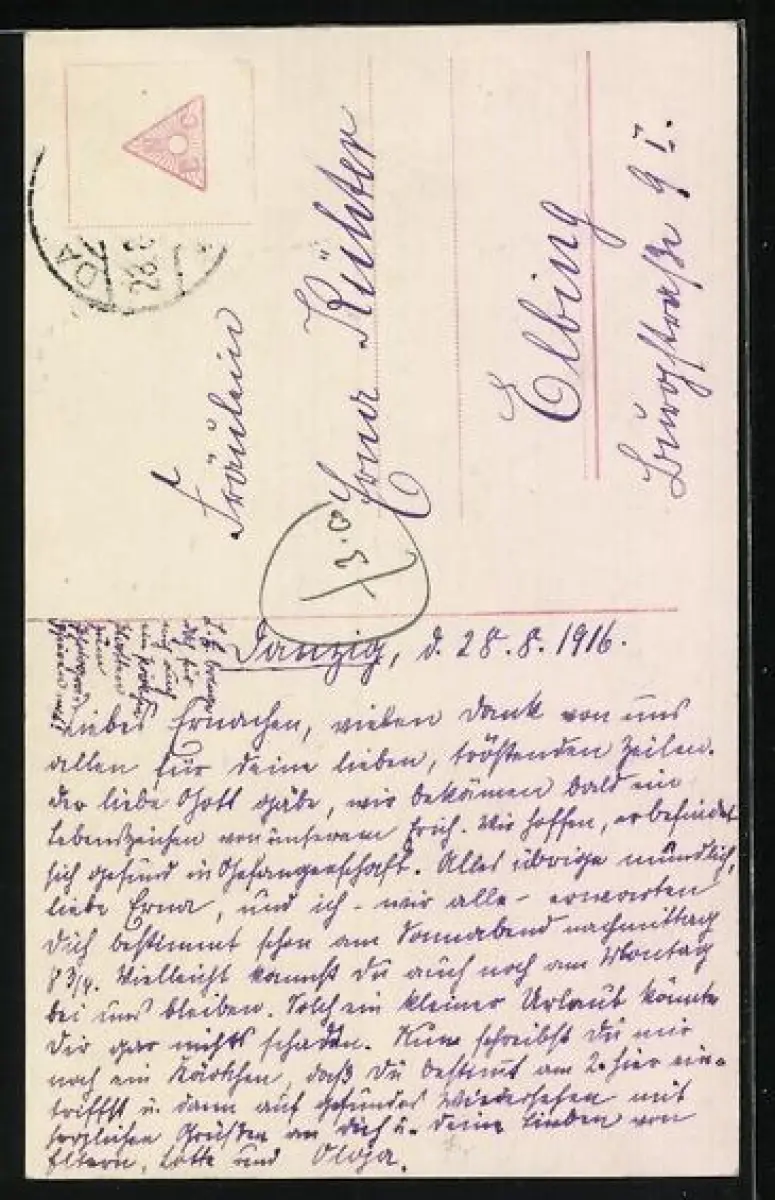 Fräulein
Erna Richter
Elbing
Burgstraße 9 I.
Danzig, d. 28.8.1916.
Liebes Ernachen, vielen Dank von uns
allen für Deine lieben, tröstenden Zeilen.
Der liebe Gott gäbe, wir bekämen bald ein
Lebenszeichen von unserem Erich. Wir hoffen, er befindet
sich gesund in Gefangenschaft. Alles übrige mündlich,
liebe Erna, und ich - wir alle - erwarten
Dich bestimmt schon am Sonnabend nachmittag
8 3/4. Vielleicht kannst Du auch noch am Montag
bei uns bleiben. Solch ein kleiner Urlaub könnte
Dir gar nichts schaden. Nun schreibst Du mir
noch ein Kärtchen, daß Du bestimmt am 2. hier ein-
triffst u. dann auf gesundes Wiedersehen mit
herzlichen Grüßen an Dich u. Deine Lieben von
Eltern, Lotte und Olga.